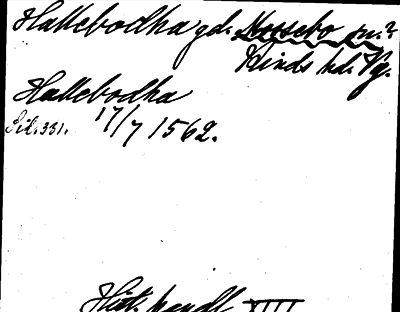 Hallebodha gd. Mossebo sn.?
Kinds hd. Vg.
Hallebodha
Sid. 331. 17/7 1562.
Hist. handl. XIII